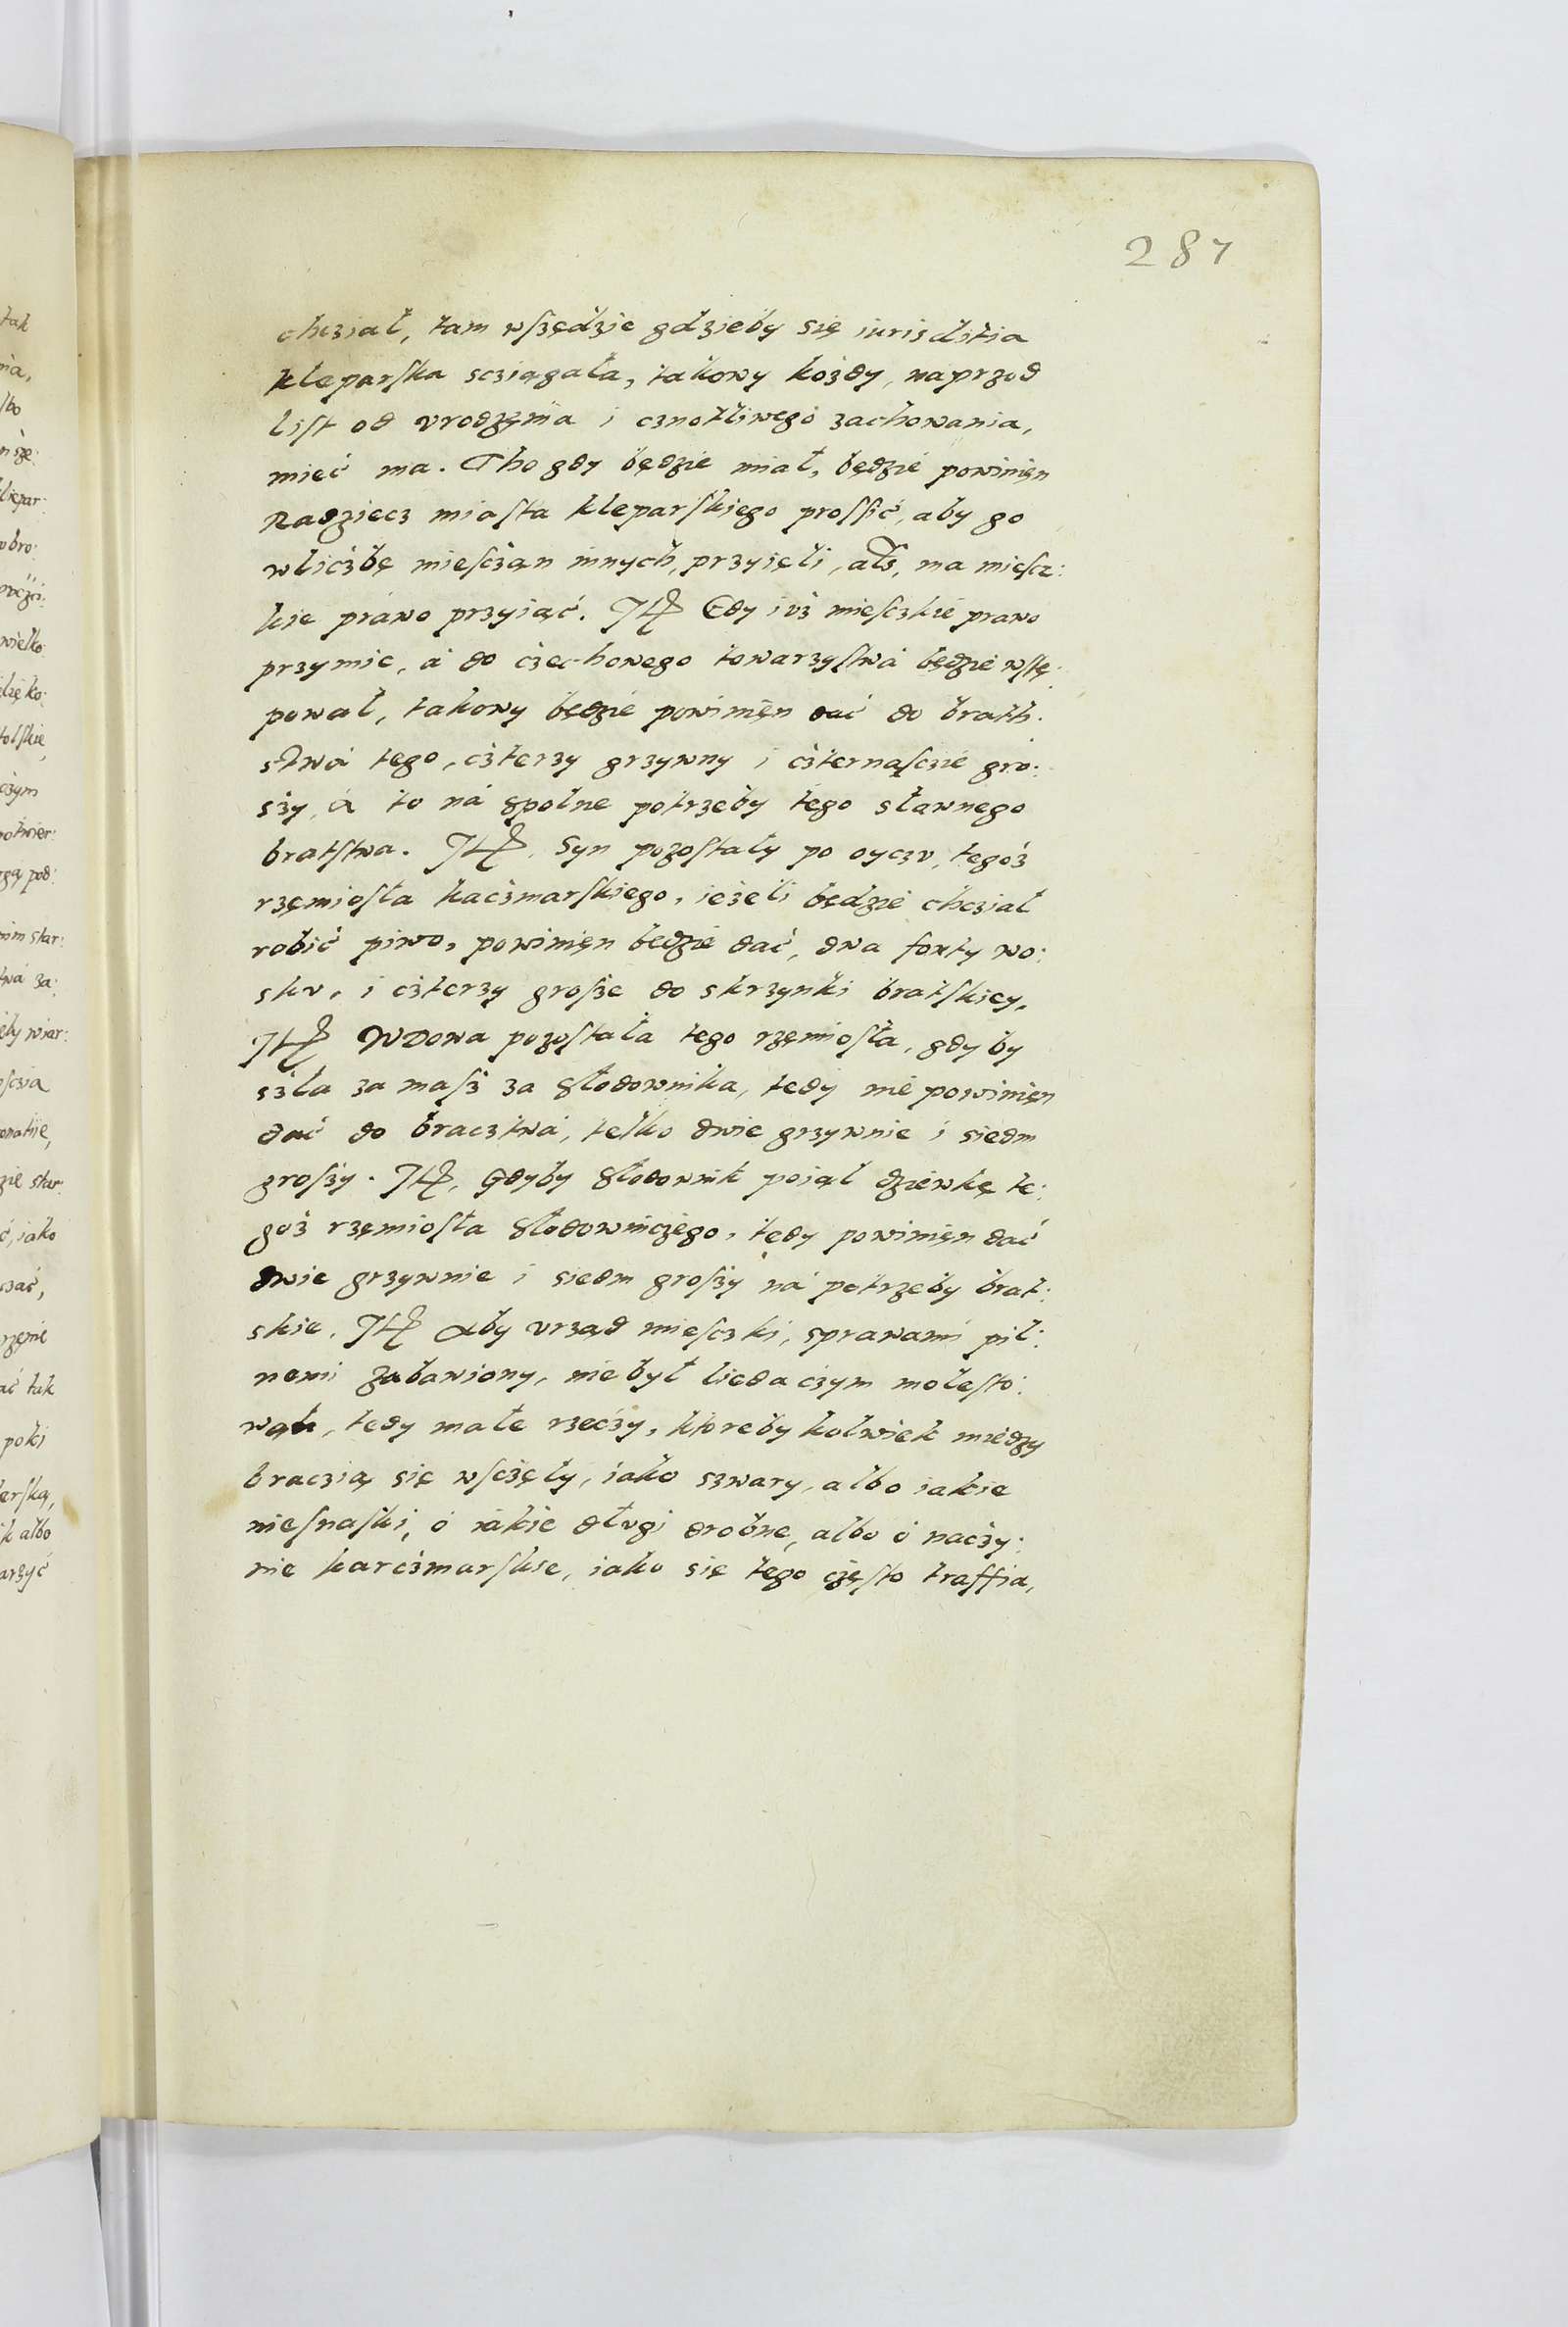 287
chcział, tam wszędzie gdzieby się iurisditia
kleparska scziągała, takowy kożdy, naprzod
list od vrodzęnia i cznotliwego zachowania,
mieć ma. Tho gdy będzie miał, będzie powinięn
Radziecz miasta kleparskiego prossić, aby go
wliczbę mieszczan innych, przyięli, als, ma miescz:
kie prawo przyiąć. Jt Gdy iuż miesczkie prawo
przymie, á do czechowego towarzystwá będzie wstę:
pował, takowy będzie powinięn dać do brath:
stwá tego, czterzy grzywny i czternaście gro:
szy, á to ná spolne potrzeby tego sławnego
bratstwa. Jt, Syn pozostały po oyczv, tegoż
rzęmiosła kaczmarskiego, ieżeli będzie chcział
robić piwo, powinięn będzie dać, dwa fonty wo:
skv, i czterzy grosze do skrzynki bratskiey,
Jt Wdowa pozostała tego rzęmiosła, gdy by
szła za masz za słodownika, tedy nie powinięn
dać do bracztwá, telko dwie grzywnie i siedm
groszy. Jt, Gdyby słodownik poiął dziewkę te:
goż rzęmiosła słodowniczego, tędy powinięn dać
dwie grzywnie i siedm groszy ná potrzeby brat:
skie. Jt Aby vrząd miesczki, sprawami pil:
nemi zabawiony, nie był liedaczym molesto:
wąn, tedy małe rzeczy, ktoreby kolwiek między
braczią się wsczęły, iako szwary, albo iakie
niesnaski, o iakie dłvgi drobne, albo o naczy:
nie karczmarskie, iako się tego często traffia,